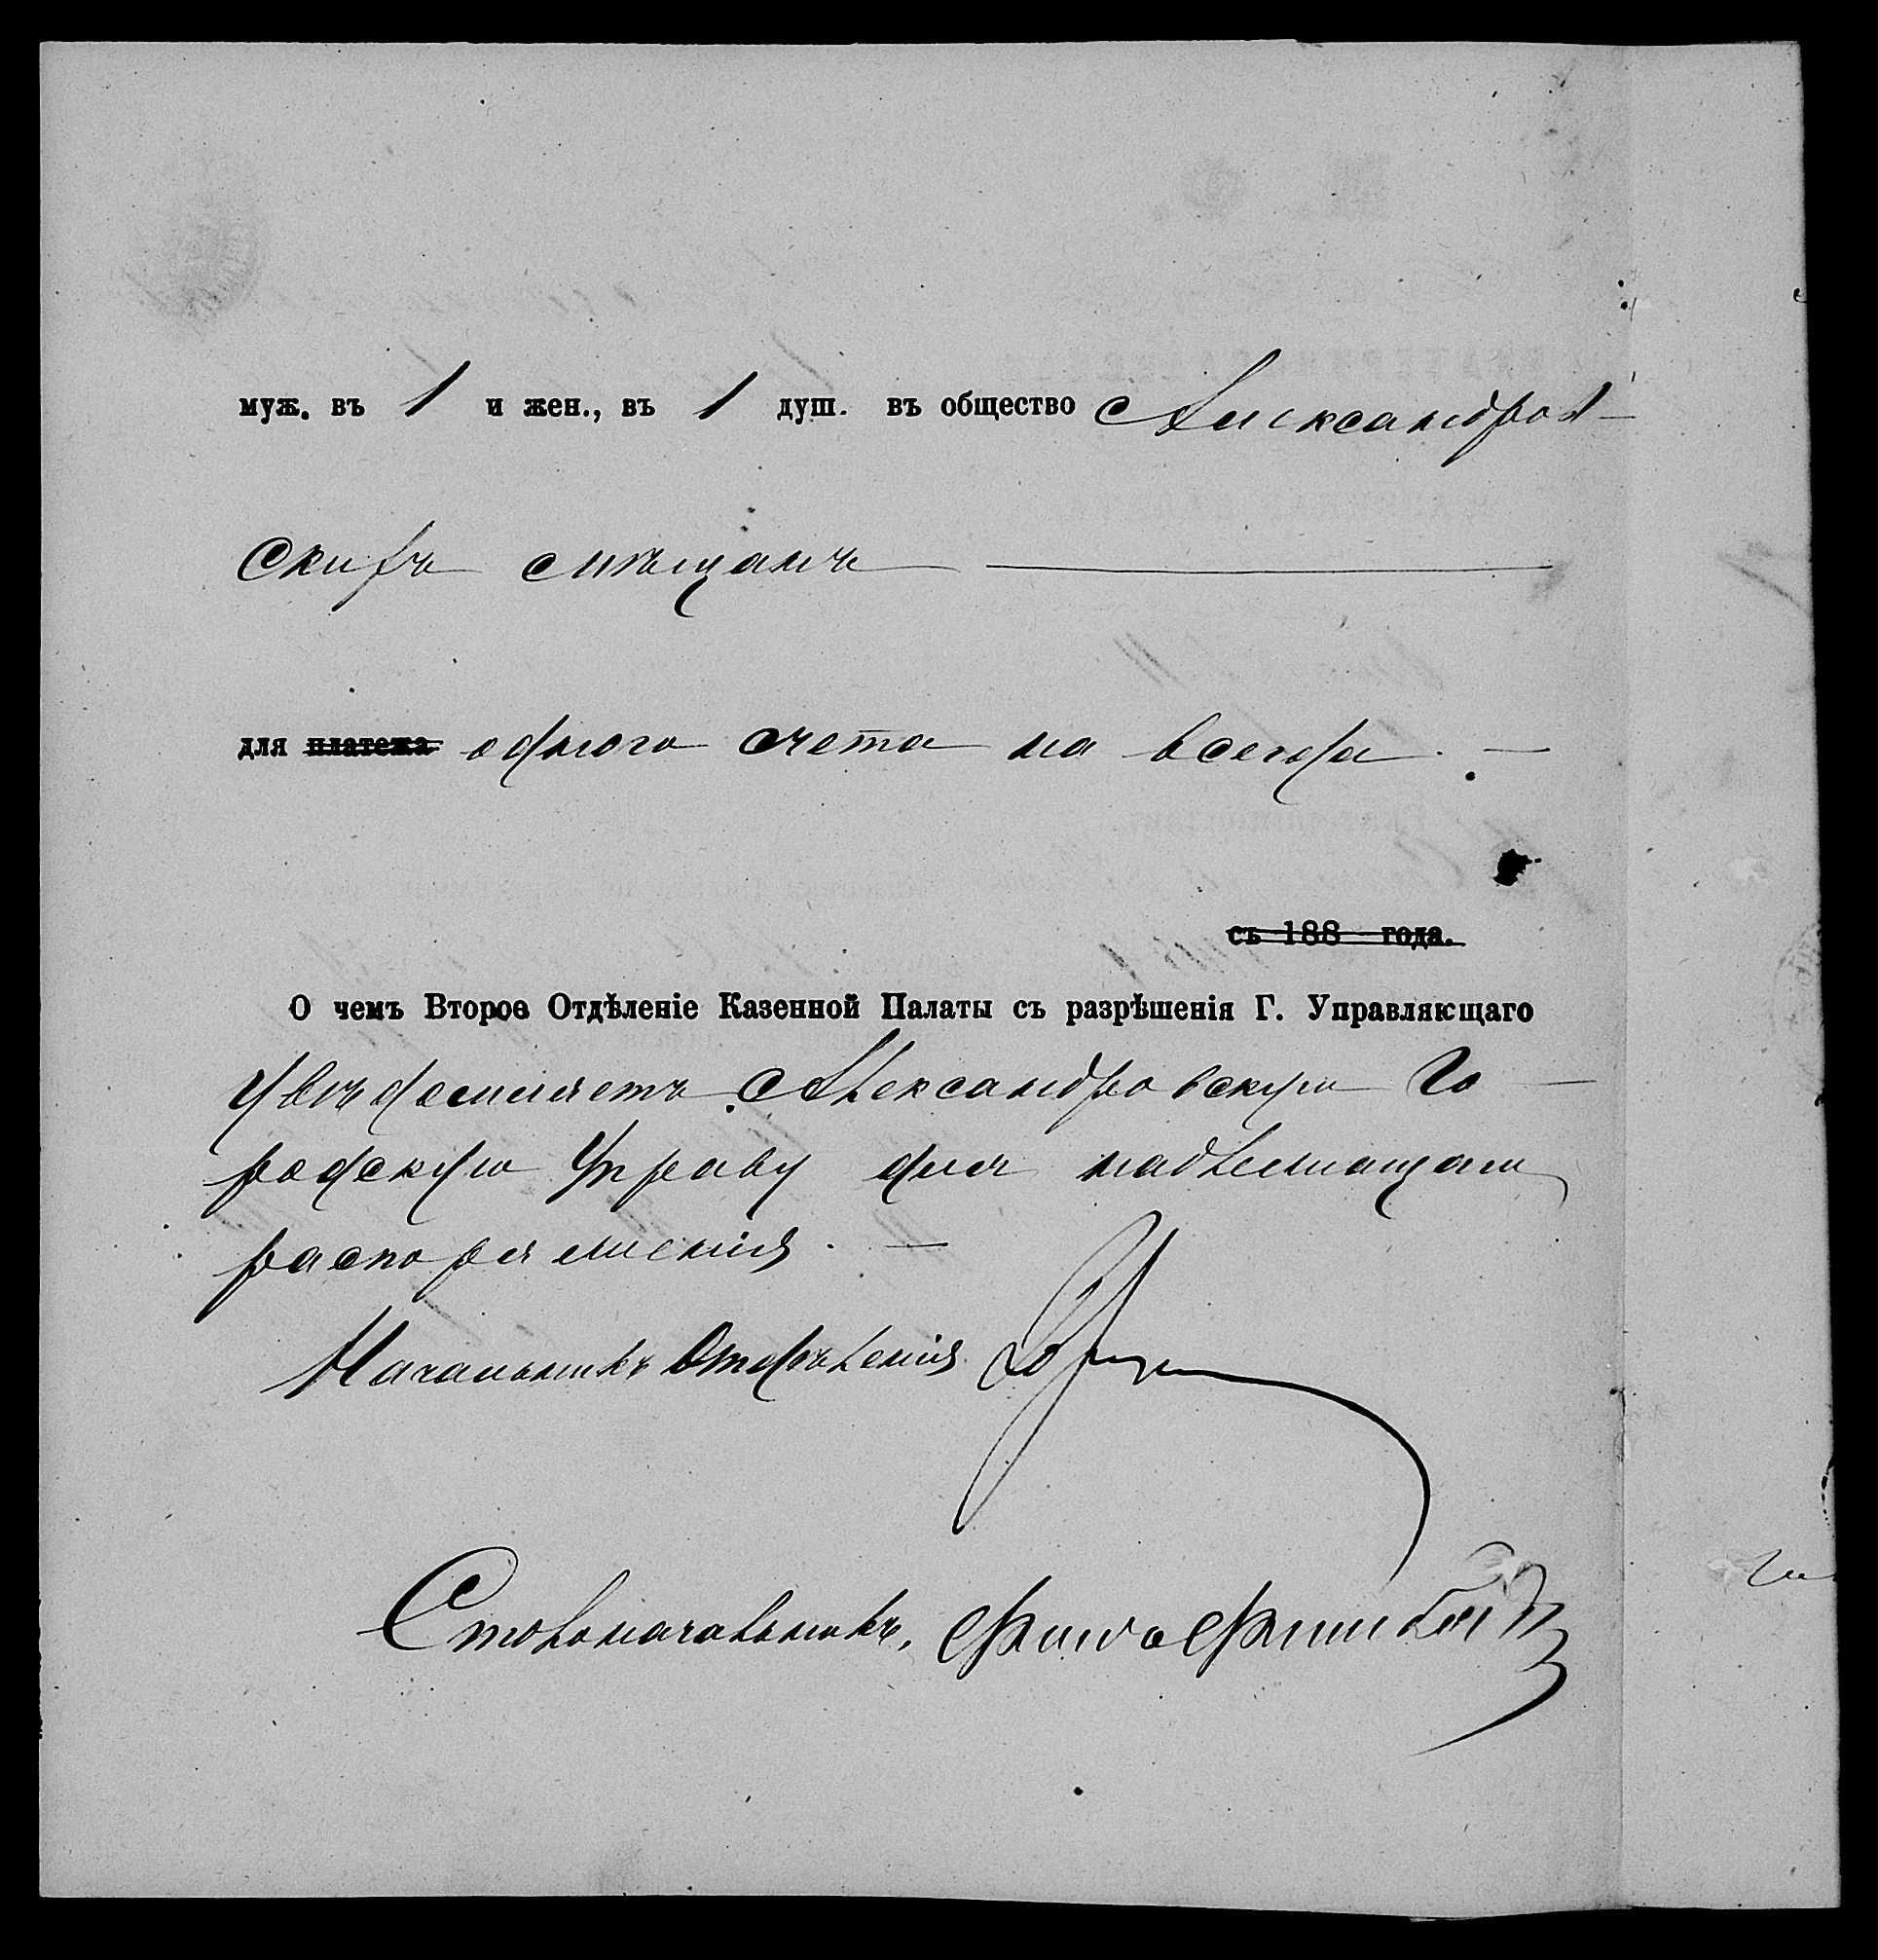 муж. въ 1 и жен., въ 1 душ. въ общество Александров-
скихъ мѣщанъ
для платежа одного счета на всегда.
съ 188 года.
О чемъ Второе Отдѣленіе Казенной Палаты съ разрѣшенія Г. Управляющаго
увѣдомляетъ Александровскую Го-
родскую Управу для надлежащаго
распоряженія.
Начальникъ Отдѣленія
Столоначальникъ,